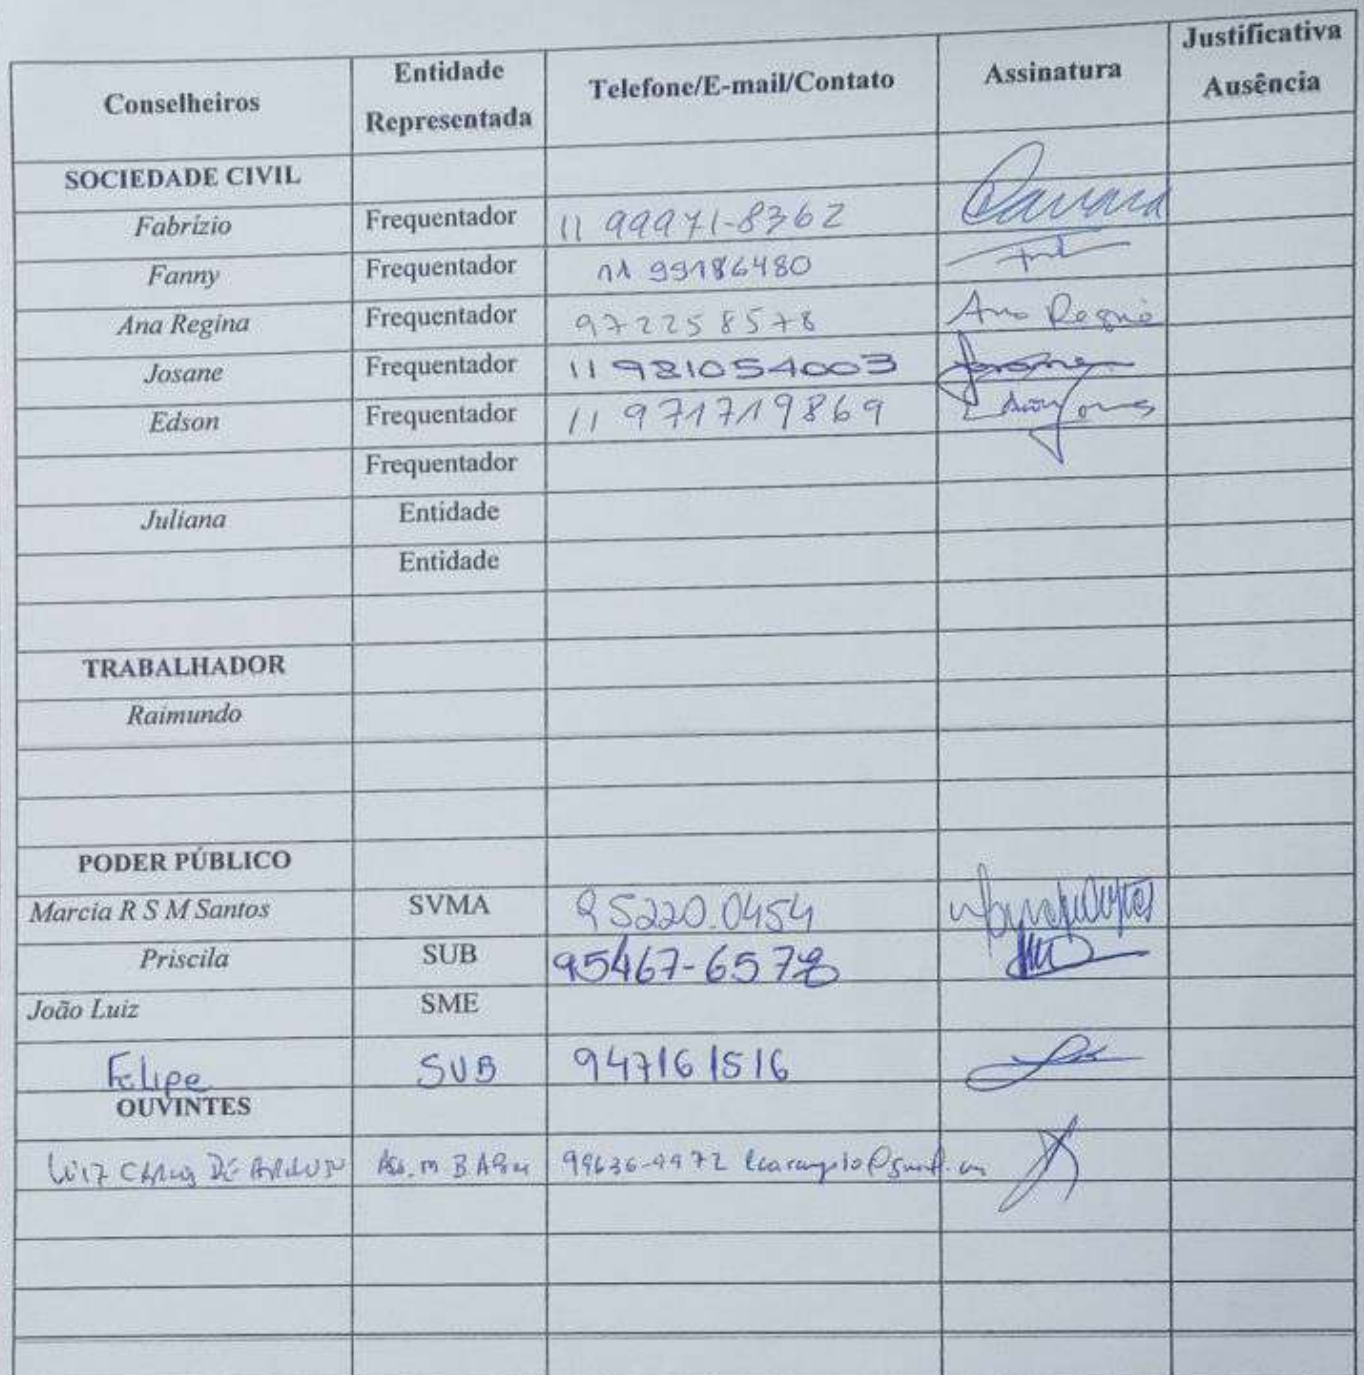 Conselheiros Entidade Representada Telefone/E-mail/Contato Assinatura Justificativa Ausência
SOCIEDADE CIVIL
Fabrízio Frequentador 11 99971-8362
Fanny Frequentador 11 99186480
Ana Regina Frequentador 972258578 Ana Regina
Josane Frequentador 11 981054003 Josane
Edson Frequentador 11 971719869
Frequentador
Juliana Entidade
Entidade
TRABALHADOR
Raimundo
PODER PÚBLICO
Marcia R S M Santos SVMA 95220.0454
Priscila SUB 95467-6578
João Luiz SME
Felipe SUB 947161516
OUVINTES
LUIZ CARLOS DE ARAUJO 99636-4972